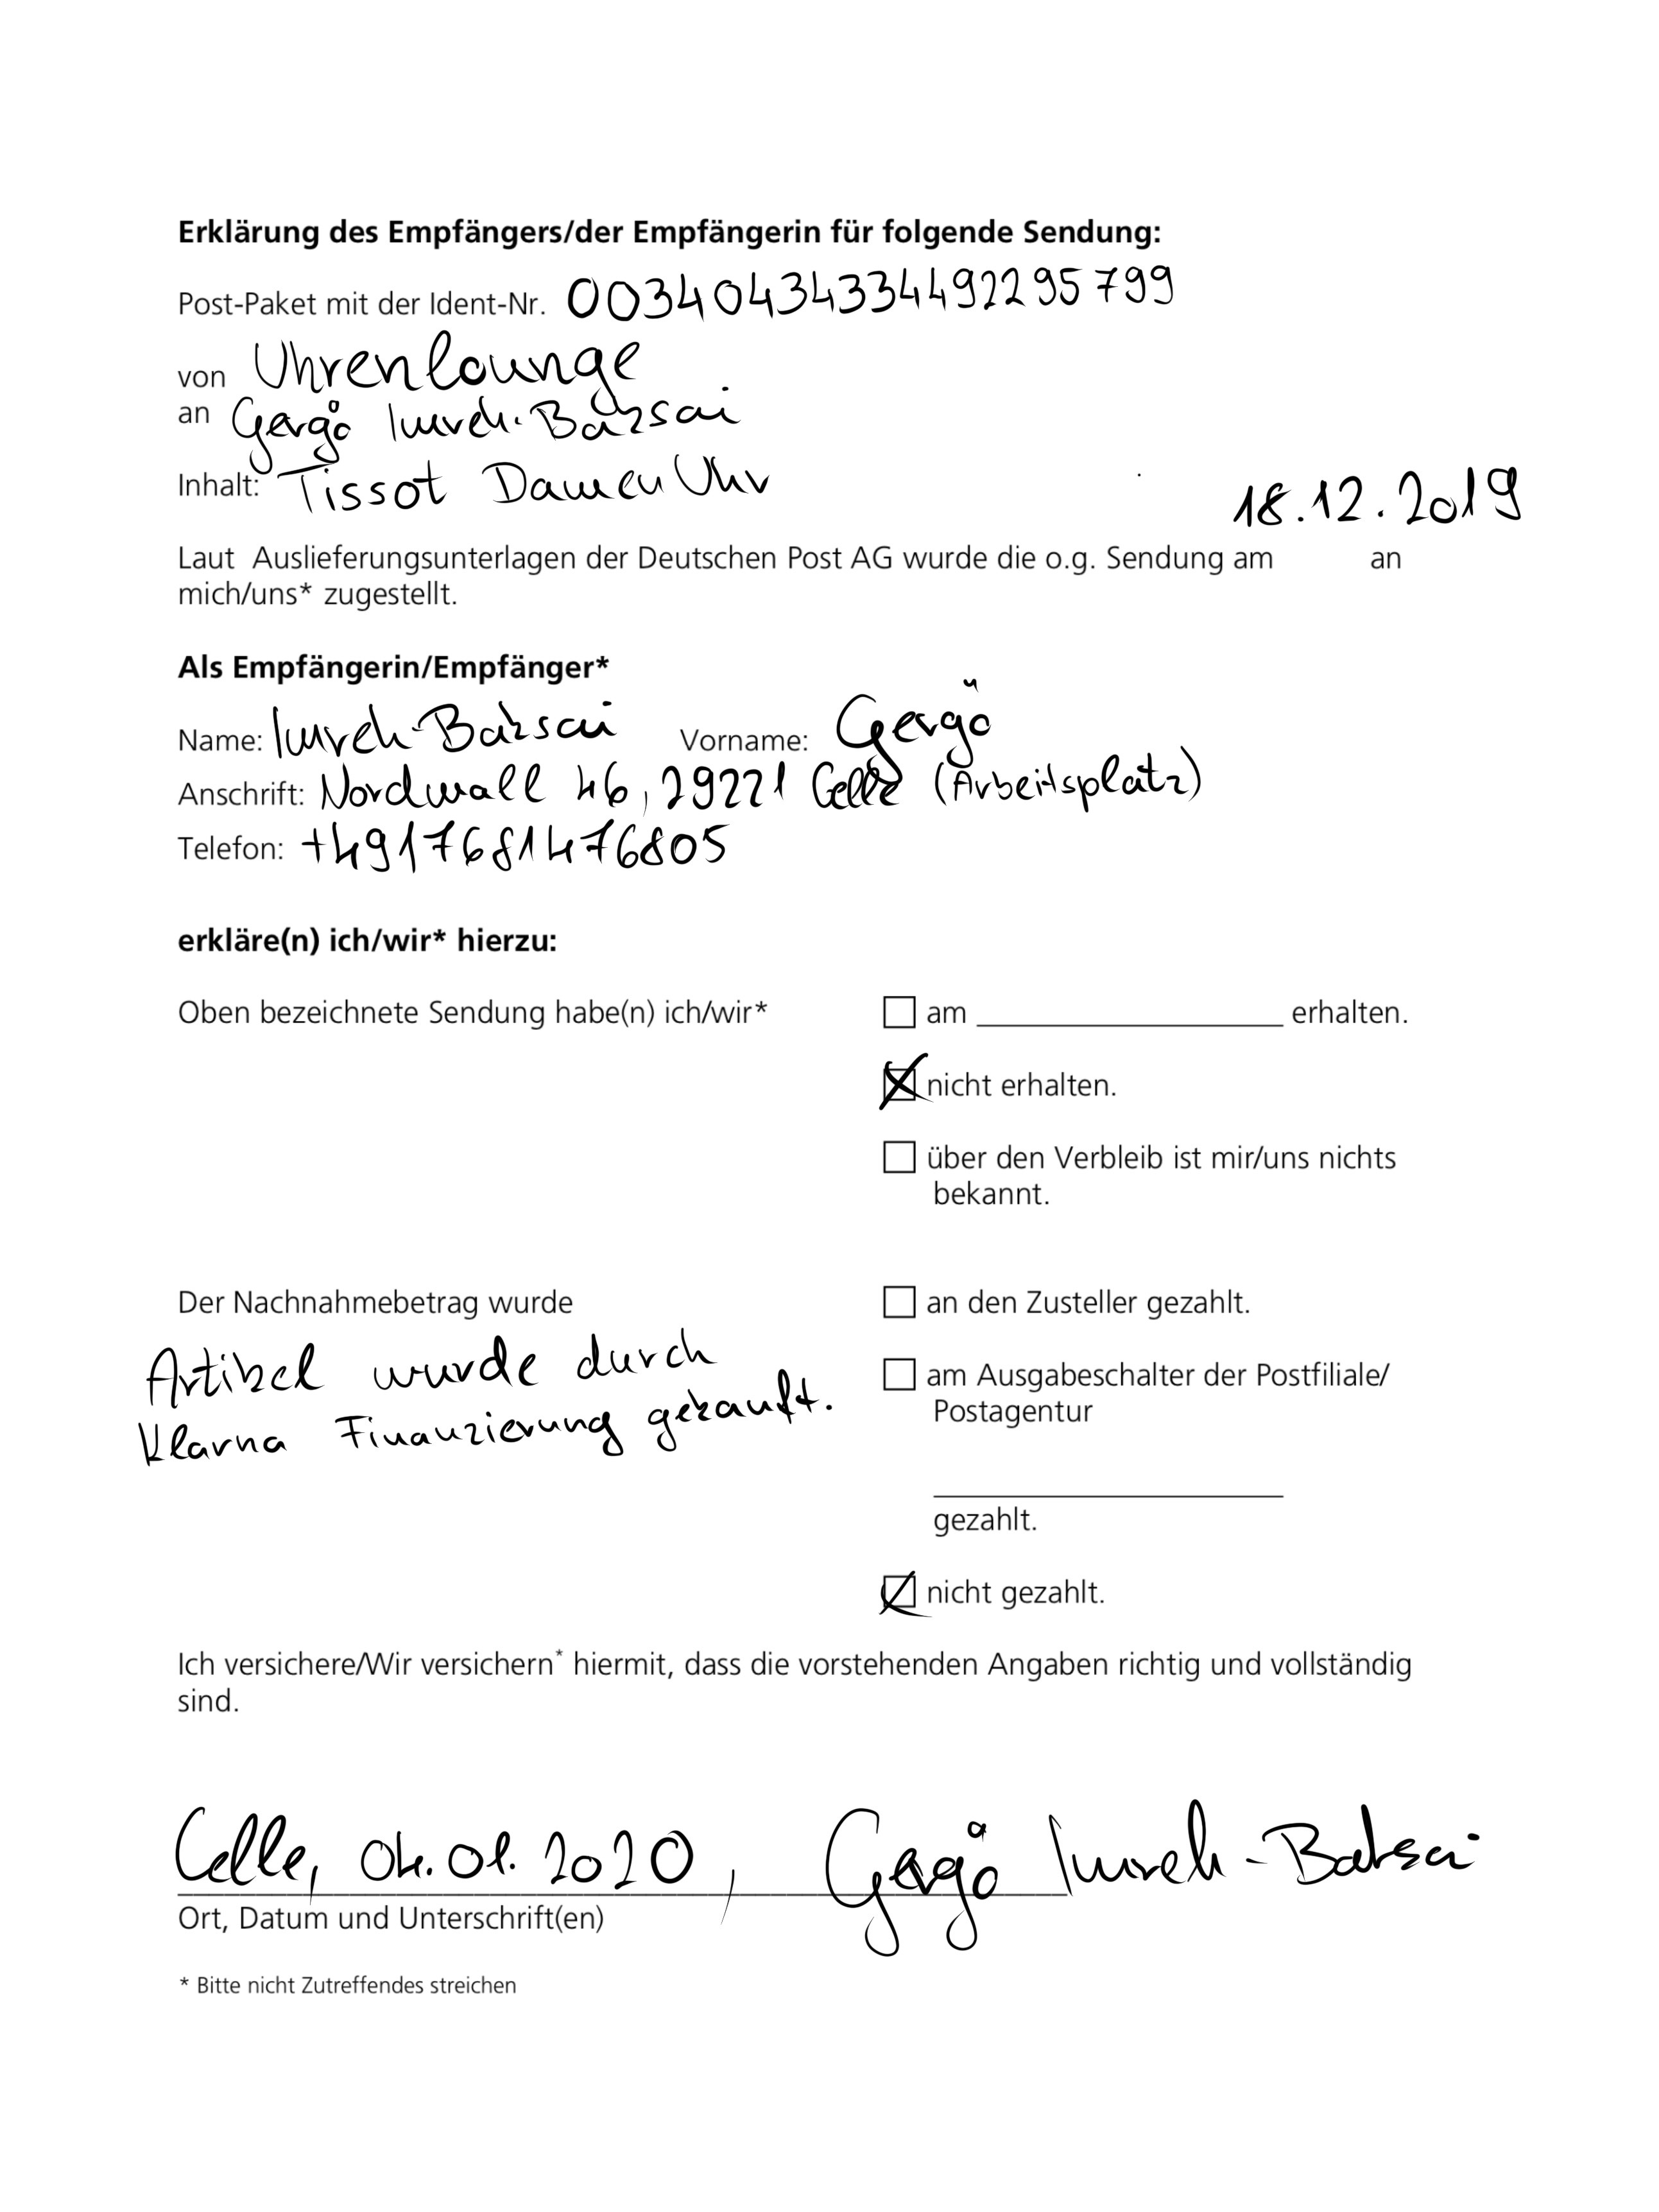 Erklärung des Empfängers/der Empfängerin für folgende Sendung:
Post-Paket mit der Ident-Nr. 00340434334492295799
von Uhrenlounge
an Gergö Imreh-Baksai
Inhalt: Tissot Damen Uhr
18.12.2019
Laut Auslieferungsunterlagen der Deutschen Post AG wurde die o.g. Sendung am an
mich/uns* zugestellt.
Als Empfängerin/Empfänger*
Name: Imreh-Baksai Vorname: Gergö
Anschrift: Nordwall 46, 29221 Celle (Arbeitsplatz)
Telefon: +4917681476805
erkläre(n) ich/wir* hierzu:
Oben bezeichnete Sendung habe(n) ich/wir* am erhalten.
nicht erhalten.
über den Verbleib ist mir/uns nichts
bekannt.
Der Nachnahmebetrag wurde an den Zusteller gezahlt.
Artikel wurde durch
Klarna Finanzierung gekauft.
am Ausgabeschalter der Postfiliale/
Postagentur
gezahlt.
nicht gezahlt.
Ich versichere/Wir versichern* hiermit, dass die vorstehenden Angaben richtig und vollständig
sind.
Celle, 04.01.2020, Gergö Imreh-Baksai
Ort, Datum und Unterschrift(en)
* Bitte nicht Zutreffendes streichen